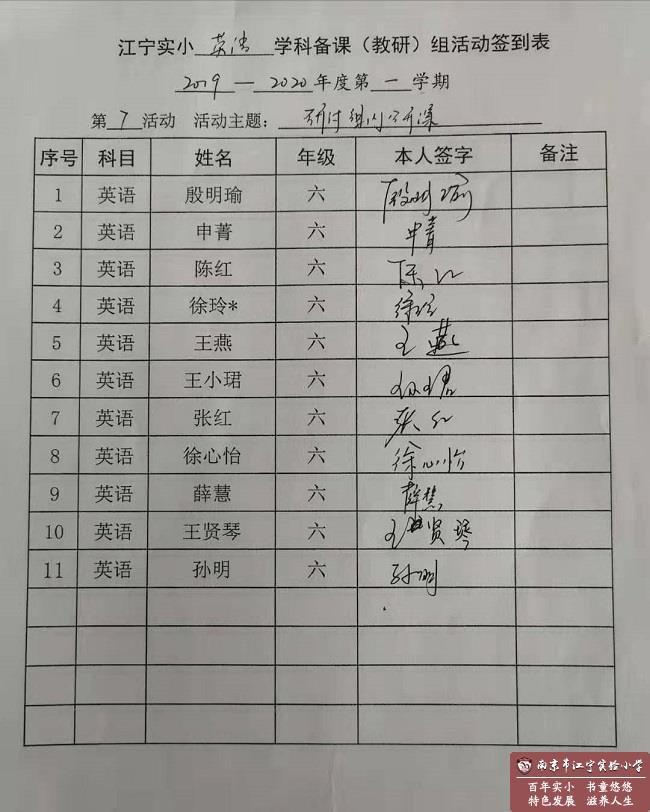 江宁实小 英语 学科备课（教研）组活动签到表
2019 — 2020 年度第 一 学期
第 7 活动 活动主题： 研讨组内公开课
序号 科目 姓名 年级 本人签字 备注
1 英语 殷明瑜 六 殷明瑜
2 英语 申菁 六 申菁
3 英语 陈红 六 陈红
4 英语 徐玲* 六 徐玲
5 英语 王燕 六 王燕
6 英语 王小珺 六 王小珺
7 英语 张红 六 张红
8 英语 徐心怡 六 徐心怡
9 英语 薛慧 六 薛慧
10 英语 王贤琴 六 王贤琴
11 英语 孙明 六 孙明
南京市江宁实验小学
百年实小 书童悠悠
特色发展 滋养人生